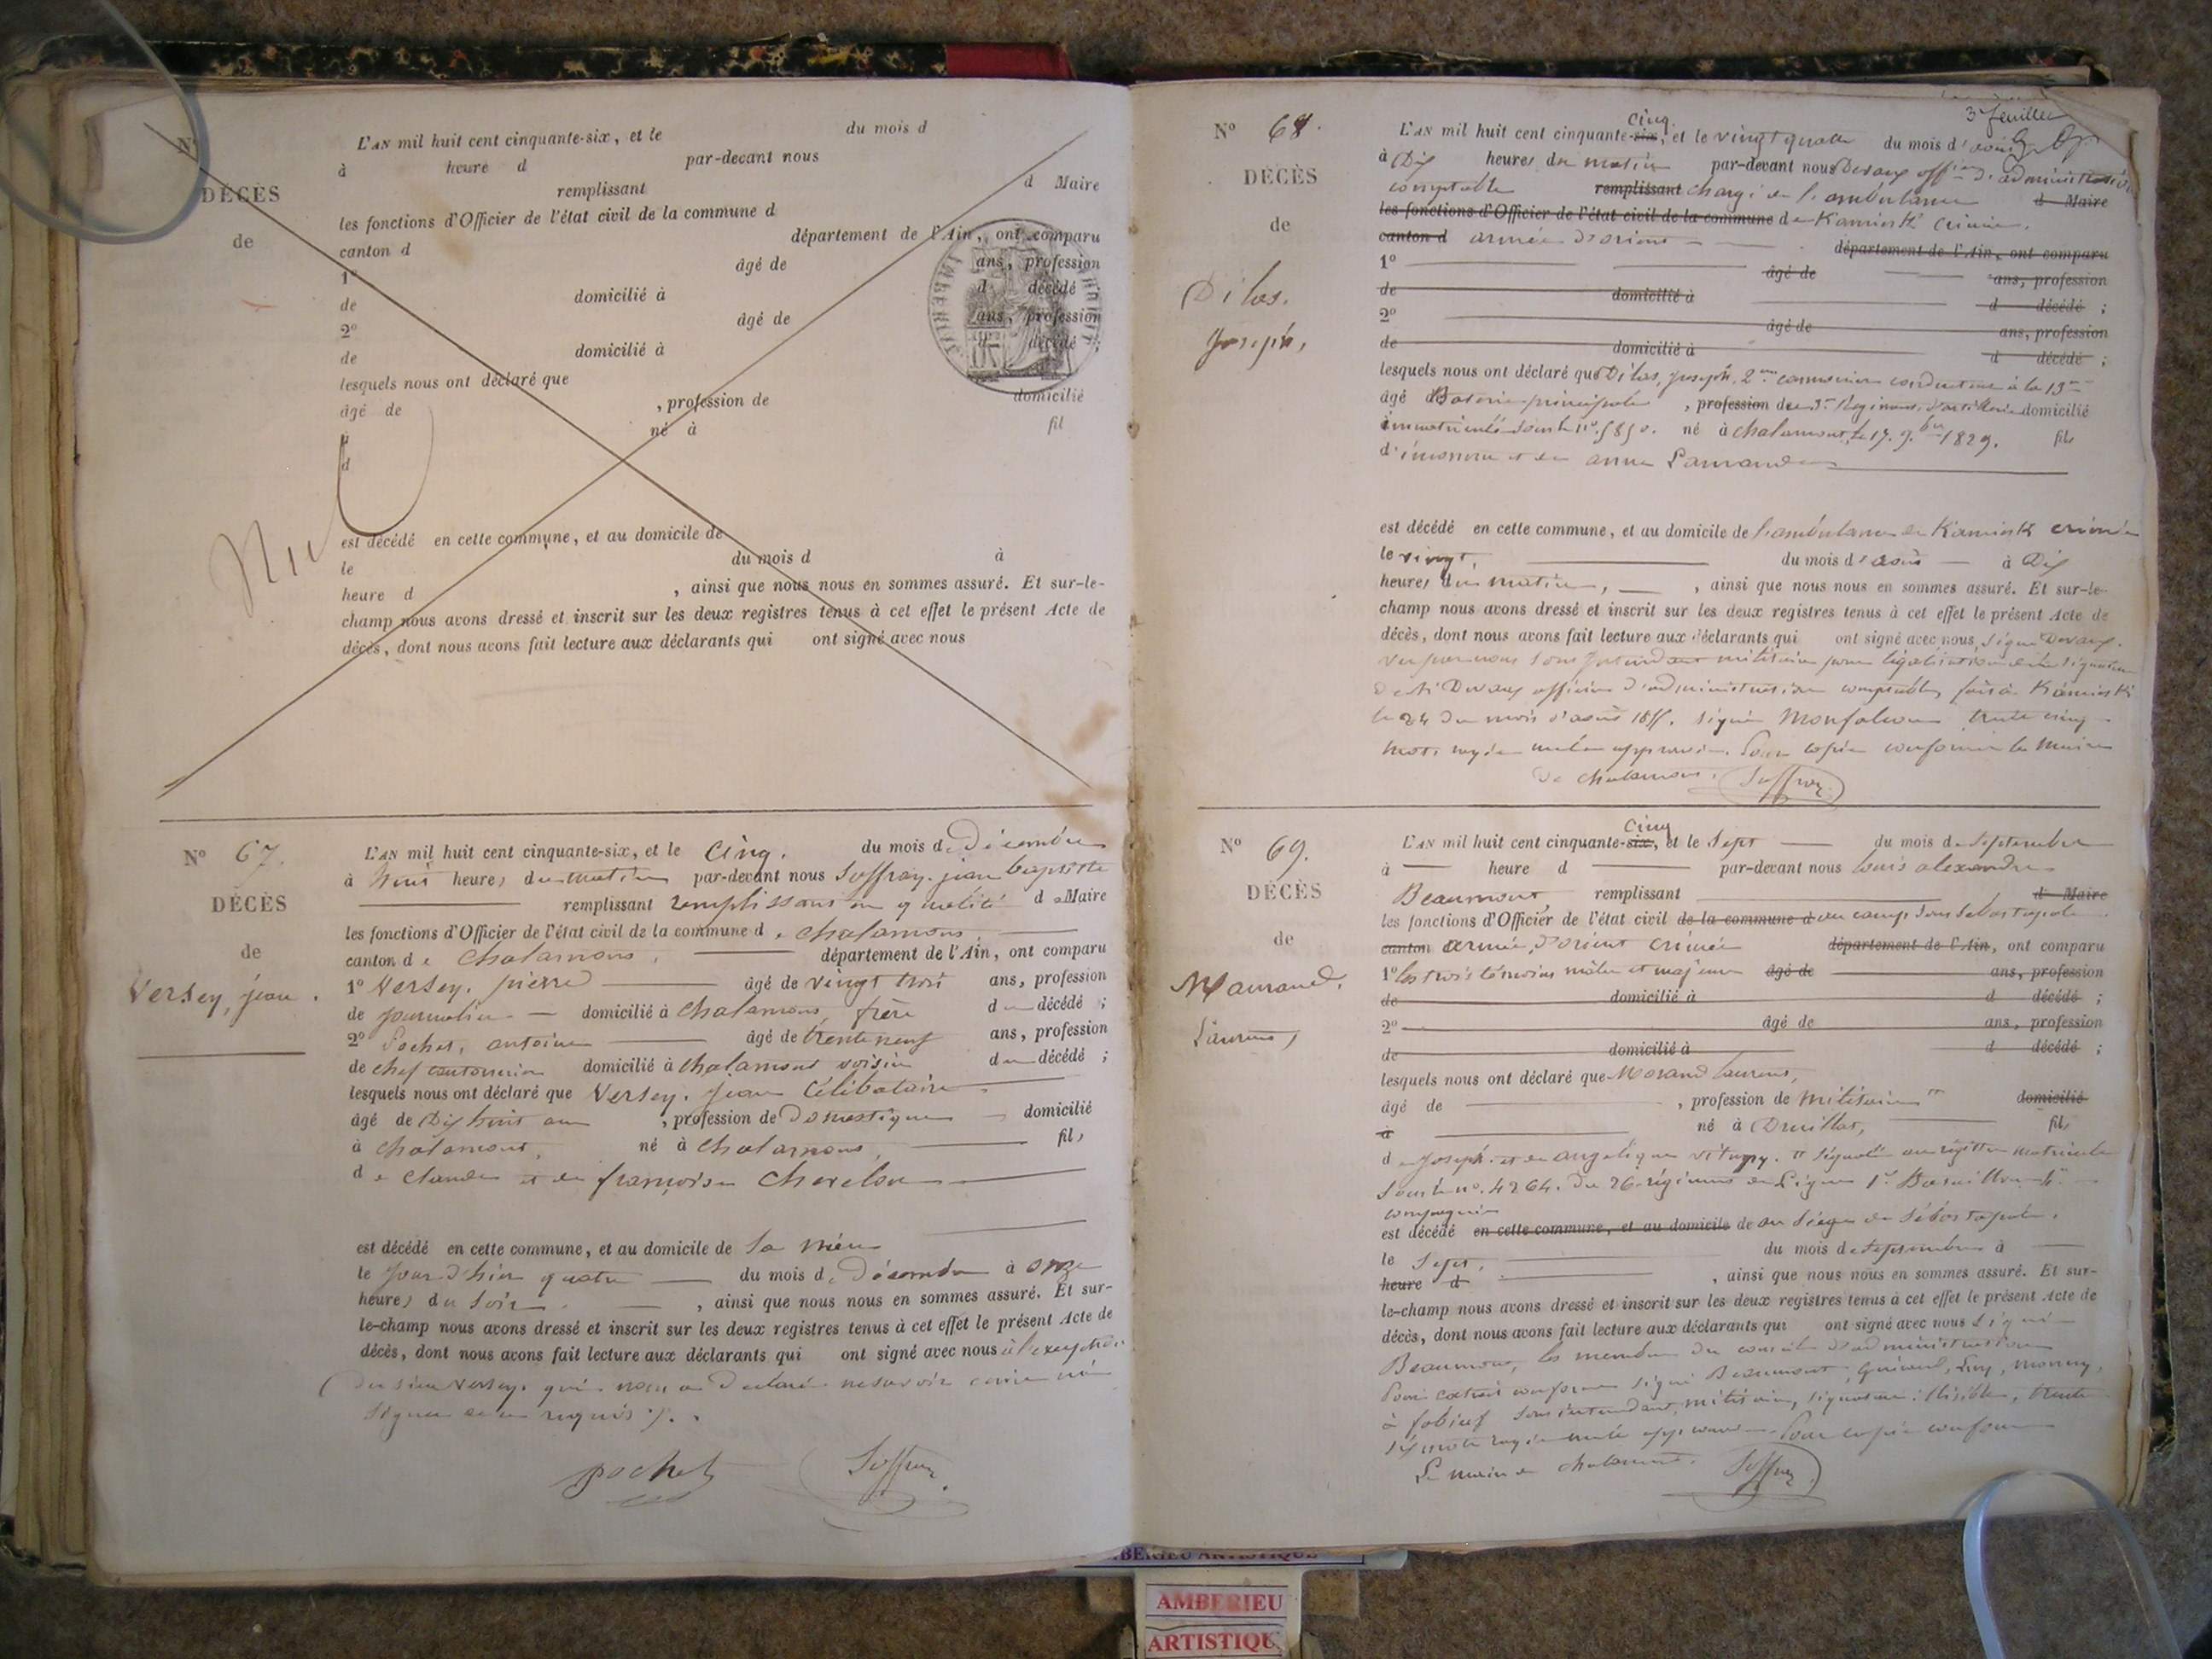 N°
DÉCÈS
de
L'AN mil huit cent cinquante-six, et le du mois d
à heure d par-devant nous
remplissant d Maire
les fonctions d'Officier de l'état civil de la commune d
canton d département de l'Ain, ont comparu
1° âgé de ans, profession
de domicilié à d décédé ;
2° âgé de ans, profession
de domicilié à d décédé ;
lesquels nous ont déclaré que
âgé de , profession de domicilié
à né à fil
d
Nul
est décédé en cette commune, et au domicile de
le du mois d à
heure d , ainsi que nous nous en sommes assuré. Et sur-le-
champ nous avons dressé et inscrit sur les deux registres tenus à cet effet le présent Acte de
décès, dont nous avons fait lecture aux déclarants qui ont signé avec nous
N° 67.
DÉCÈS
de
Versey, jean.
L'AN mil huit cent cinquante-six, et le cinq. du mois de Décembre
à huit heures du matin par-devant nous Soffray jean baptiste
remplissant remplissant en qualité de Maire
les fonctions d'Officier de l'état civil de la commune de chalamont
canton de Chalamont, département de l'Ain, ont comparu
1° Versey, pierre âgé de vingt trois ans, profession
de journalier domicilié à Chalamont, frère du décédé ;
2° Pochet, antoine âgé de trente neuf ans, profession
de chef cantonnier domicilié à chalamont voisin du décédé ;
lesquels nous ont déclaré que Versey, jean Célibataire
âgé de Dix huit ans , profession de Domestique domicilié
à Chalamont, né à Chalamont, fils
de Claude et de françoise
est décédé en cette commune, et au domicile de Sa mère
le jour d'hier quatre du mois de Décembre à onze
heures du Soir , ainsi que nous nous en sommes assuré. Et sur-
le-champ nous avons dressé et inscrit sur les deux registres tenus à cet effet le présent Acte de
décès, dont nous avons fait lecture aux déclarants qui ont signé avec nous à l'exception
du sieur Versey, qui nous a Déclaré ne savoir écrire ni
signer de ce requis ./.
pochet Soffray
3e feuillet
N° 68.
DÉCÈS
de
Dilas.
Joseph,
L'AN mil huit cent cinquante-six, cinq et le vingt quatre du mois d'août
à Dix heures du matin par-devant nous Devaux officier d'administration
comptable remplissant chargé de l'ambulance d Maire
les fonctions d'Officier de l'état civil de la commune de Kamiesh Crimée.
canton d armée d'orient département de l'Ain, ont comparu
1° âgé de ans, profession
de domicilié à d décédé ;
2° âgé de ans, profession
de domicilié à d décédé ;
lesquels nous ont déclaré que Dilas, joseph, 2me cannonier conducteur à la 13me
âgé d Baterie principale , profession de 3e Régiment d'artillerie domicilié
immatriculé sous le n° 5850. né à Chalamont, le 17. 9bre 1829. fils
d' et de anne
est décédé en cette commune, et au domicile de l'ambulance de Kamiesh crimée
le vingt, du mois d'août à Dix
heures du matin, , ainsi que nous nous en sommes assuré. Et sur-le-
champ nous avons dressé et inscrit sur les deux registres tenus à cet effet le présent Acte de
décès, dont nous avons fait lecture aux déclarants qui ont signé avec nous, signé Devaux.
Vu par nous Sous intendant militaire pour légalisation de la signature
de Mr Devaux officier d'administration comptable, fait à Kamiesh
le 24 du mois d'août 1855. signé Monfalcon trente cinq
mots rayés nuls approuvés. Pour copie conforme le Maire
de chalamont. Soffray
N° 69.
DÉCÈS
de
Mourand.
Laurent,
L'AN mil huit cent cinquante-six, cinq et le sept du mois de Septembre
à heure d par-devant nous louis alexandre
Beaumont remplissant d Maire
les fonctions d'Officier de l'état civil de la commune d au camp sous Sebastopole
canton armée d'orient crimée département de l'Ain, ont comparu
1° les trois témoins mâles et majeurs âgé de ans, profession
de domicilié à d décédé ;
2° âgé de ans, profession
de domicilié à d décédé ;
lesquels nous ont déclaré que Morand laurent,
âgé de , profession de militaire domicilié
à né à Druillat, fils
de joseph et de angélique signalé au registre matricule
sous le n° 4264. du 26 régiment de Ligne 1er Bataillon
compagnie
est décédé en cette commune, et au domicile de au Siége de Sébastopole.
le Sept, du mois de Septembre à
heure d , ainsi que nous nous en sommes assuré. Et sur-
le-champ nous avons dressé et inscrit sur les deux registres tenus à cet effet le présent Acte de
décès, dont nous avons fait lecture aux déclarants qui ont signé avec nous signé
Beaumont, les membres du conseil d'administration
Pour extrait conforme signé Beaumont,
sous intendant militaire, signature illisible, trente
six mots rayés nuls approuvés. Pour copie conforme
Le maire de chalamont. Soffray
AMBERIEU ARTISTIQUE
AMBERIEU
ARTISTIQU